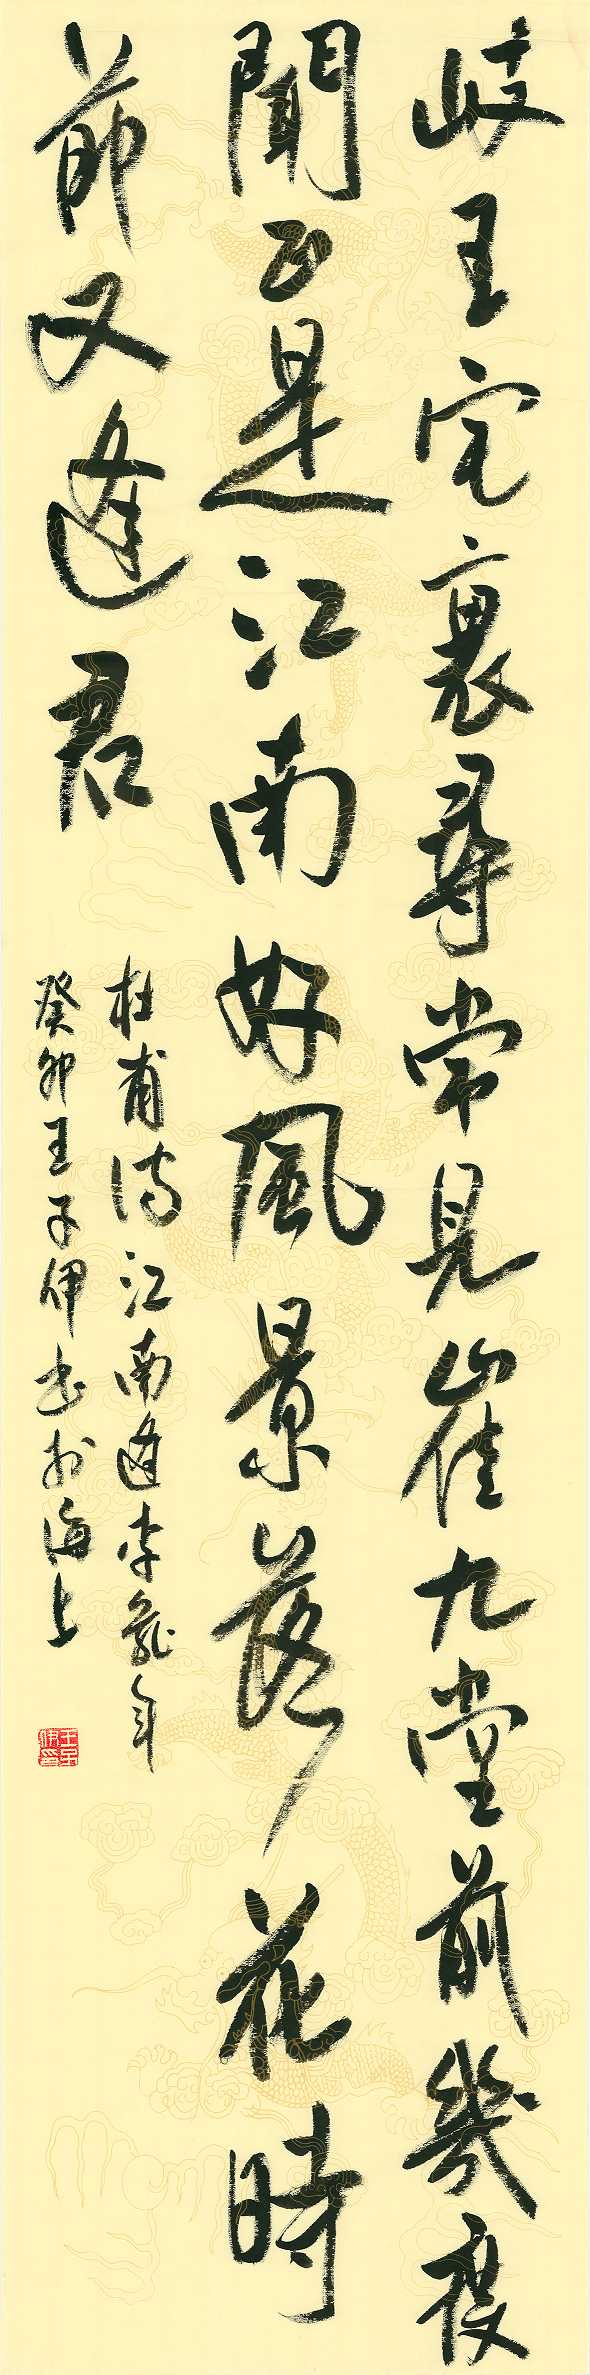 岐王宅裏尋常見崔九堂前幾度
聞正是江南好風景落花時
節又逢君
杜甫詩江南逢李龜年
癸卯王子伊书於海上
王子伊印